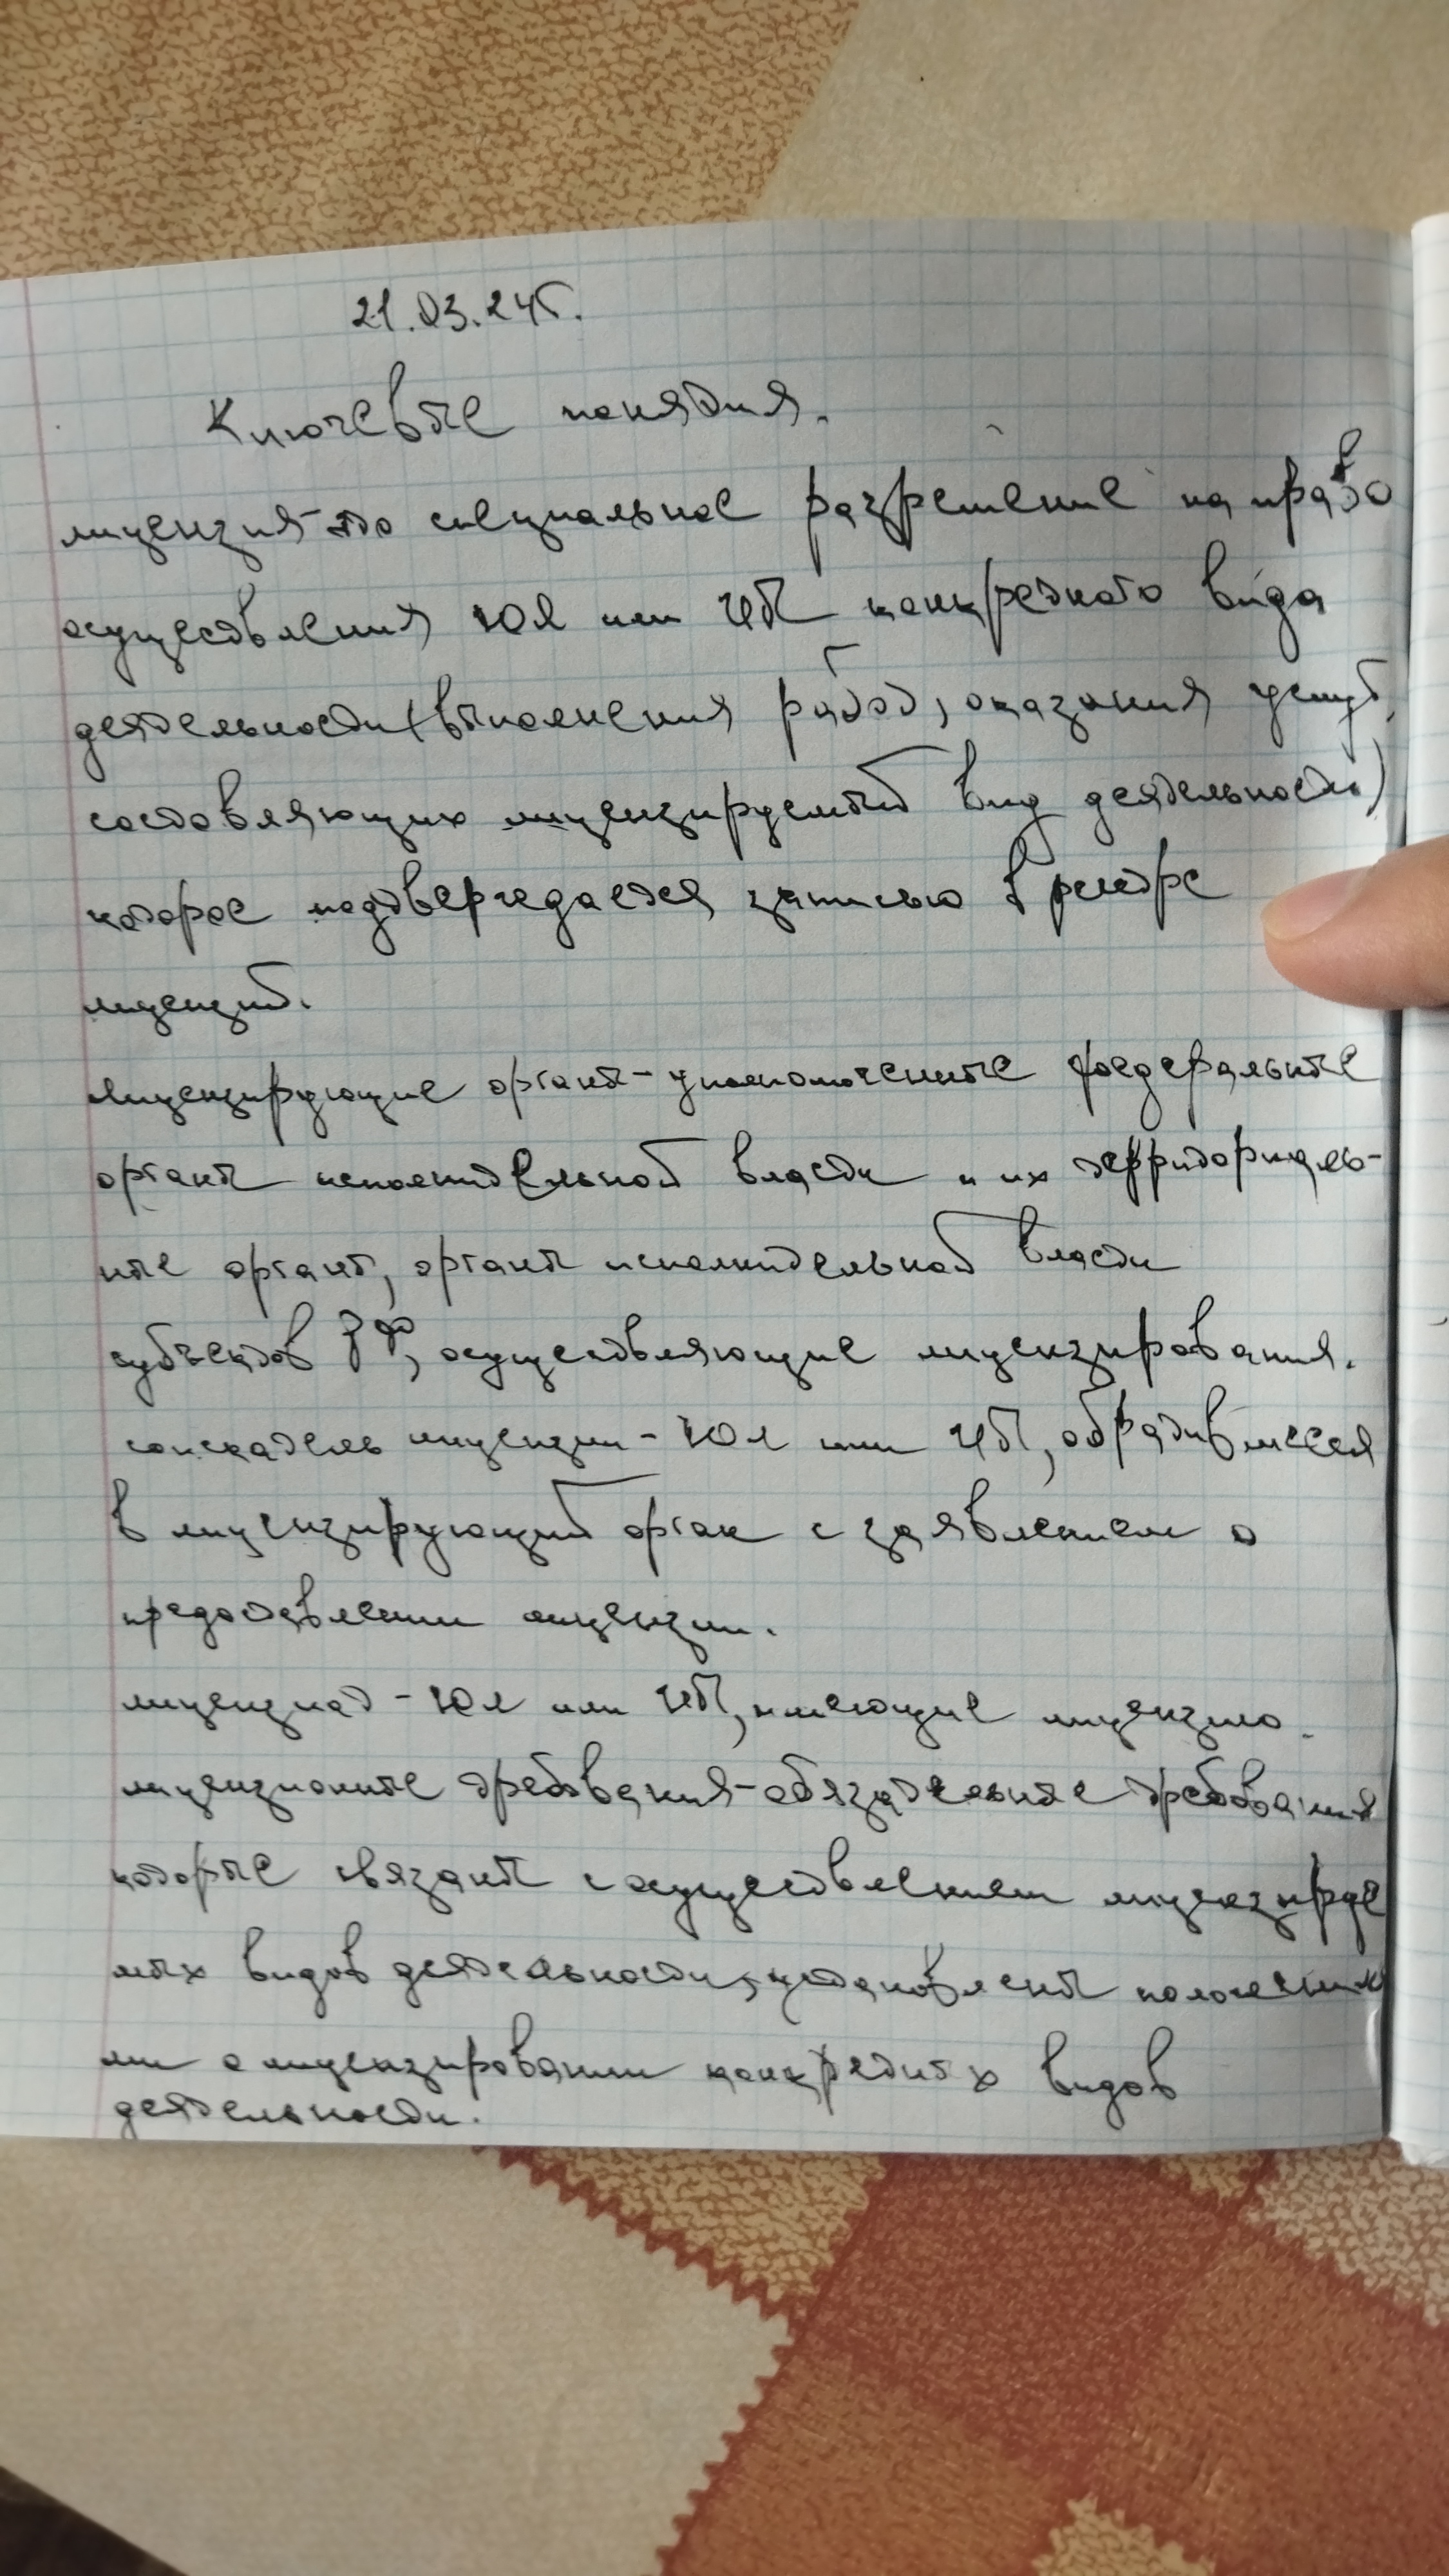 21.03.24г.
Ключевые понятия.
лицензия-это специальное разрешение на право
осуществления ЮЛ или ИП конкретного вида
деятельности(выполнения работ, оказания услуг,
состовляющих лицензируемый вид деятельности)
которое подтверждается записью в реестре
лицензий.
Лицензирующие органы-уполномоченные федеральные
органы исполнительной власти и их территориаль-
ные органы, органы исполнительной власти
субъектов РФ, осуществляющие лицензирования.
соискатель лицензии-ЮЛ или ИП, обратившееся
в лицензирующий орган с заявлением о
предоставлении лицензии.
лицензиат-ЮЛ или ИП, имеющие лицензию.
лицензионные требования-обязательные требования
которые связаны с осуществлением лицензируе
мых видов деятельности, установлены положения
ми о лицензировании конкретных видов
деятельности.